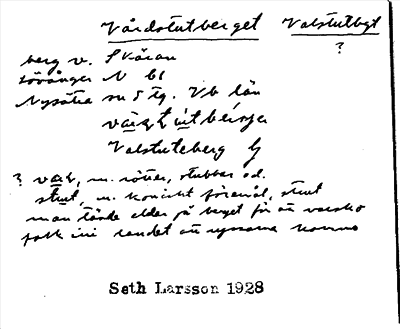 Vårdstutberget Valstutbgt
?
berg v. Skåran
Lövånger N 61
Nysätra sn 5 tg. Vb län
Valstuteberg G
? val, m. rötter, stubbar o.d.
stut, m. koniskt föremål, strut
man tände eldar på berget för att varsko
folk ini landet att ryssarna kommo
Seth Larsson 1928